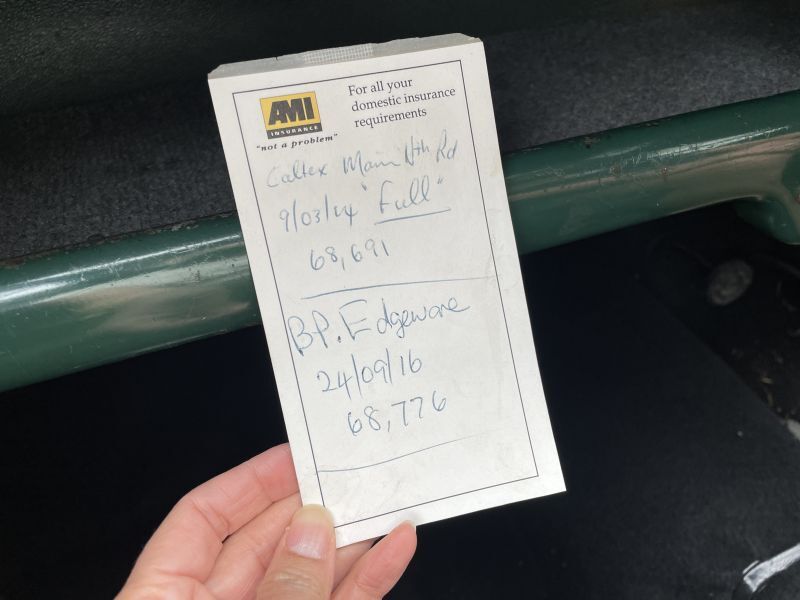 AMI
INSURANCE
"not a problem"
For all your
domestic insurance
requirements
Caltex Main Nth Rd
9/03/14 "Full"
68,691
BP. Edgeware
24/09/16
68,776